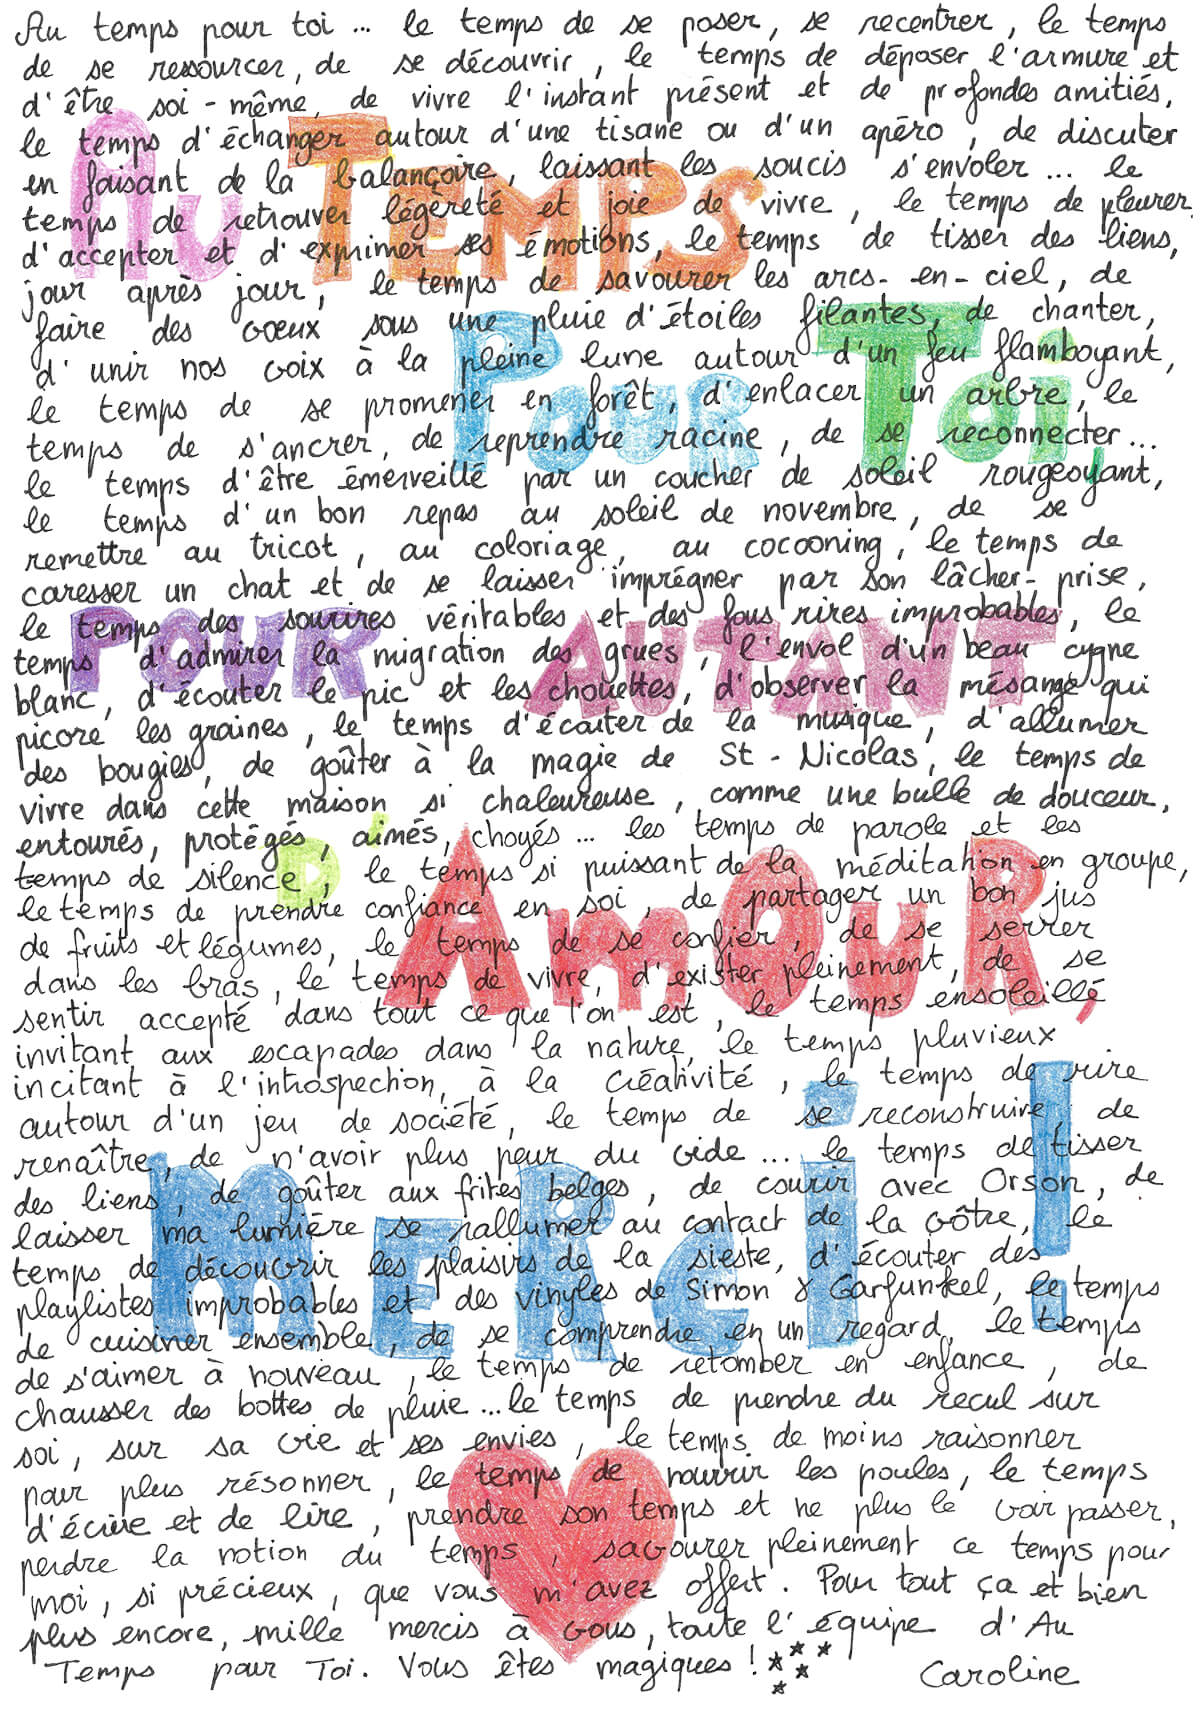 Au temps pour toi ... le temps de se poser, se recentrer, le temps
de se ressourcer, de se découvrir, le temps de déposer l'armure et
d'être soi-même, de vivre l'instant présent et de profondes amitiés,
le temps d'échanger autour d'une tisane ou d'un apéro, de discuter
en faisant de la balançoire, laissant les soucis s'envoler ... le
temps de retrouver légèreté et joie de vivre, le temps de pleurer,
d'accepter et d'exprimer ses émotions, le temps de tisser des liens,
jour après jour, le temps de savourer les arcs-en-ciel, de
faire des vœux sous une pluie d'étoiles filantes, de chanter,
d'unir nos voix à la pleine lune autour d'un feu flamboyant,
le temps de se promener en forêt, d'enlacer un arbre, le
temps de s'ancrer, de reprendre racine, de se reconnecter ...
le temps d'être émerveillé par un coucher de soleil rougeoyant,
le temps d'un bon repas au soleil de novembre, de se
remettre au tricot, au coloriage, au cocooning, le temps de
caresser un chat et de se laisser imprégner par son lâcher-prise,
le temps des sourires véritables et des fous rires improbables, le
temps d'admirer la migration des grues, l'envol d'un beau cygne
blanc, d'écouter le pic et les chouettes, d'observer la mésange qui
picore les graines, le temps d'écouter de la musique, d'allumer
des bougies, de goûter à la magie de St-Nicolas, le temps de
vivre dans cette maison si chaleureuse, comme une bulle de douceur,
entourés, protégés, aimés, choyés ... les temps de parole et les
temps de silence, le temps si puissant de la méditation en groupe,
le temps de prendre confiance en soi, de partager un bon jus
de fruits et légumes, le temps de se confier, de se serrer
dans les bras, le temps de vivre, d'exister pleinement, de se
sentir accepté dans tout ce que l'on est, le temps ensoleillé
invitant aux escapades dans la nature, le temps pluvieux
incitant à l'introspection, à la créativité, le temps de rire
autour d'un jeu de société, le temps de se reconstruire, de
renaître, de n'avoir plus peur du vide ... le temps de tisser
des liens, de goûter aux frites belges, de courir avec Orson, de
laisser ma lumière se rallumer au contact de la vôtre, le
temps de découvrir les plaisirs de la sieste, d'écouter des
playlistes improbables et des vinyles de Simon & Garfunkel, le temps
de cuisiner ensemble, de se comprendre en un regard, le temps
de s'aimer à nouveau, le temps de retomber en enfance, de
chausser des bottes de pluie ... le temps de prendre du recul sur
soi, sur sa vie et ses envies, le temps de moins raisonner
pour plus résonner, le temps de nourrir les poules, le temps
d'écrire et de lire, prendre son temps et ne plus le voir passer,
perdre la notion du temps, savourer pleinement ce temps pour
moi, si précieux, que vous m'avez offert. Pour tout ça et bien
plus encore, mille mercis à vous, toute l'équipe d'Au
Temps pour Toi. Vous êtes magiques !
Caroline
Au Temps
Pour Toi,
POUR AUTANT
D'AmOuR,
MeRci !